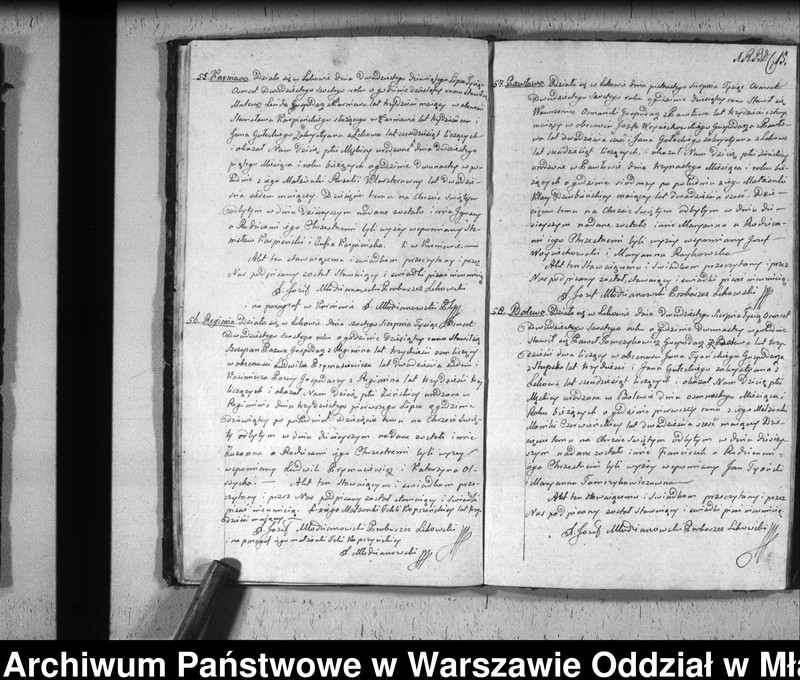 55. Karniewo. Działo się w Lekowie dnia Dwudziestego Dziewiątego Lipca Tysiąc
Osmset Dwudziestego szostego roku o godzinie dziesiątey rano Stawił się
Mateusz Gospodarz z Karniewa lat trzydzieści maiący w obecności
Stanisława Karpińskiego
Jana Gołeckiego Zakrystyana z Lekowa lat szesdziesiąt liczących
i okazał Nam Dziecię płci Męskiey urodzone dnia Dwudziestego
piątego Miesiąca i roku bieżących o godzinie Dwunastey w po-
łudnie z iego Małżonki Rozalii lat Dwadzie-
ścia siedem maiącey. Dziecięciu temu na Chrzcie Świętym
odbytym w dniu dzisieyszym nadane zostało imie Ignacy
a Rodzicami iego Chrzestnemi byli wyżey wspomniany Sta-
nisław Karpiński i Zofia Karpińska.
Akt ten stawaiącemu i świadkom przeczytany i przez
Nas podpisany został Stawaiący i świadki pisać nieumieią
X. Jozef Młodzianowski Proboszcz Lekowski
X. Młodzianowski
56. Regimin. Działo się w Lekowie dnia szostego Sierpnia Tysiąc Osmset
Dwudziestego szostego roku o godzinie Dziesiątey rano Stawił się
Szczepan Gospodarz z Regimina lat trzydzieści osm liczący
w obecności Ludwika Prymusiewicza lat dwadzieścia siedem i
Kazimierza Gospodarzy z Regimina lat trzydzieści trzy
liczących i okazał Nam Dziecię płci Żeńskiey urodzone w
Regiminie dnia trzydziestego pierwszego Lipca o godzinie
Dziewiątey po południu. Dziecięciu temu na Chrzcie Świę-
tym odbytym w dniu dzisieyszym nadane zostało imie
Zuzanna a Rodzicami iego Chrzestnemi byli wyżey
wspomniany Ludwik Prymusiewicz i Katarzyna Ol-
szycka. — Akt ten stawaiącym i świadkom prze-
czytany i przez Nas podpisany został stawaiący i świadki
pisać nieumieią. z iego Małżonki Tekli lat trzy-
dzieści maiącey
X. Jozef Młodzianowski Proboszcz Lekowski
i na iego małżonki Tekli
X. Młodzianowski
57. Pawłowo. Działo się w Lekowie dnia piętnastego Sierpnia Tysiąc Osmset
Dwudziestego Szostego roku o godzinie Dziesiątey rano Stawił się
Wawrzeniec Osmański Gospodarz z Pawłowa lat trzydzieści cztery
maiący w obecności Jozefa Woyciechowskiego Gospodarza z Pawło-
wa lat dwadzieścia sześć i Jana Gołeckiego zakrystyana z Lekowa
lat szesdziesiąt liczących, i okazał Nam Dziecię płci Żeńskiey
urodzone w Pawłowie dnia trzynastego Miesiąca i roku bie-
żących o godzinie siodmey po południu z iego Małżonki
Klary maiącey lat dwadzieścia sześć. Dzie-
cięciu temu na Chrzcie Świętym odbytym w dniu dzi-
sieyszym nadane zostało imie Maryanna a Rodzica-
mi iego Chrzestnemi byli wyżey wspomniany Jozef
Woyciechowski i Maryanna Raykowska
Akt ten Stawaiącemu i Świadkom przeczytany i przez
Nas podpisany został, stawaiący i świadki pisać nieumieią.
X. Jozef Młodzianowski Proboszcz Lekowski
58. Bolewo. Działo się w Lekowie dnia Dwudziestego Sierpnia Tysiąc Osmset
Dwudziestego Szostego roku o godzinie Dwunastey w południe
Stawił się Paweł Tomczykowicz Gospodarz z Bolewa lat trzy-
dzieści dwa liczący w obecności Jana Tyońskiego Gospodarza
lat trzydzieści i Jana Gołeckiego zakrystyana z
Lekowa lat szesdziesiąt liczących i okazał Nam Dziecię płci
Męskiey urodzone w Bolewie dnia osmnastego Miesiąca i
Roku bieżących o godzinie pierwszey rano z iego Małżonki
Maryanki lat dwadzieścia sześć maiącey Dzie-
cięciu temu na Chrzcie Świętym odbytym w dniu dzisiey-
szym nadane zostało imie Franciszek a Rodzicami
iego Chrzestnemi byli wyżey wspomniany Jan Tyoński
i Maryanna Tomczykowiczowna
Akt ten stawaiącemu i świadkom przeczytany i przez
Nas podpisany został Stawaiący i świadki pisać nieumieią
X. Jozef Młodzianowski Proboszcz Lekowski
Archiwum Państwowe w Warszawie Oddział w Mła